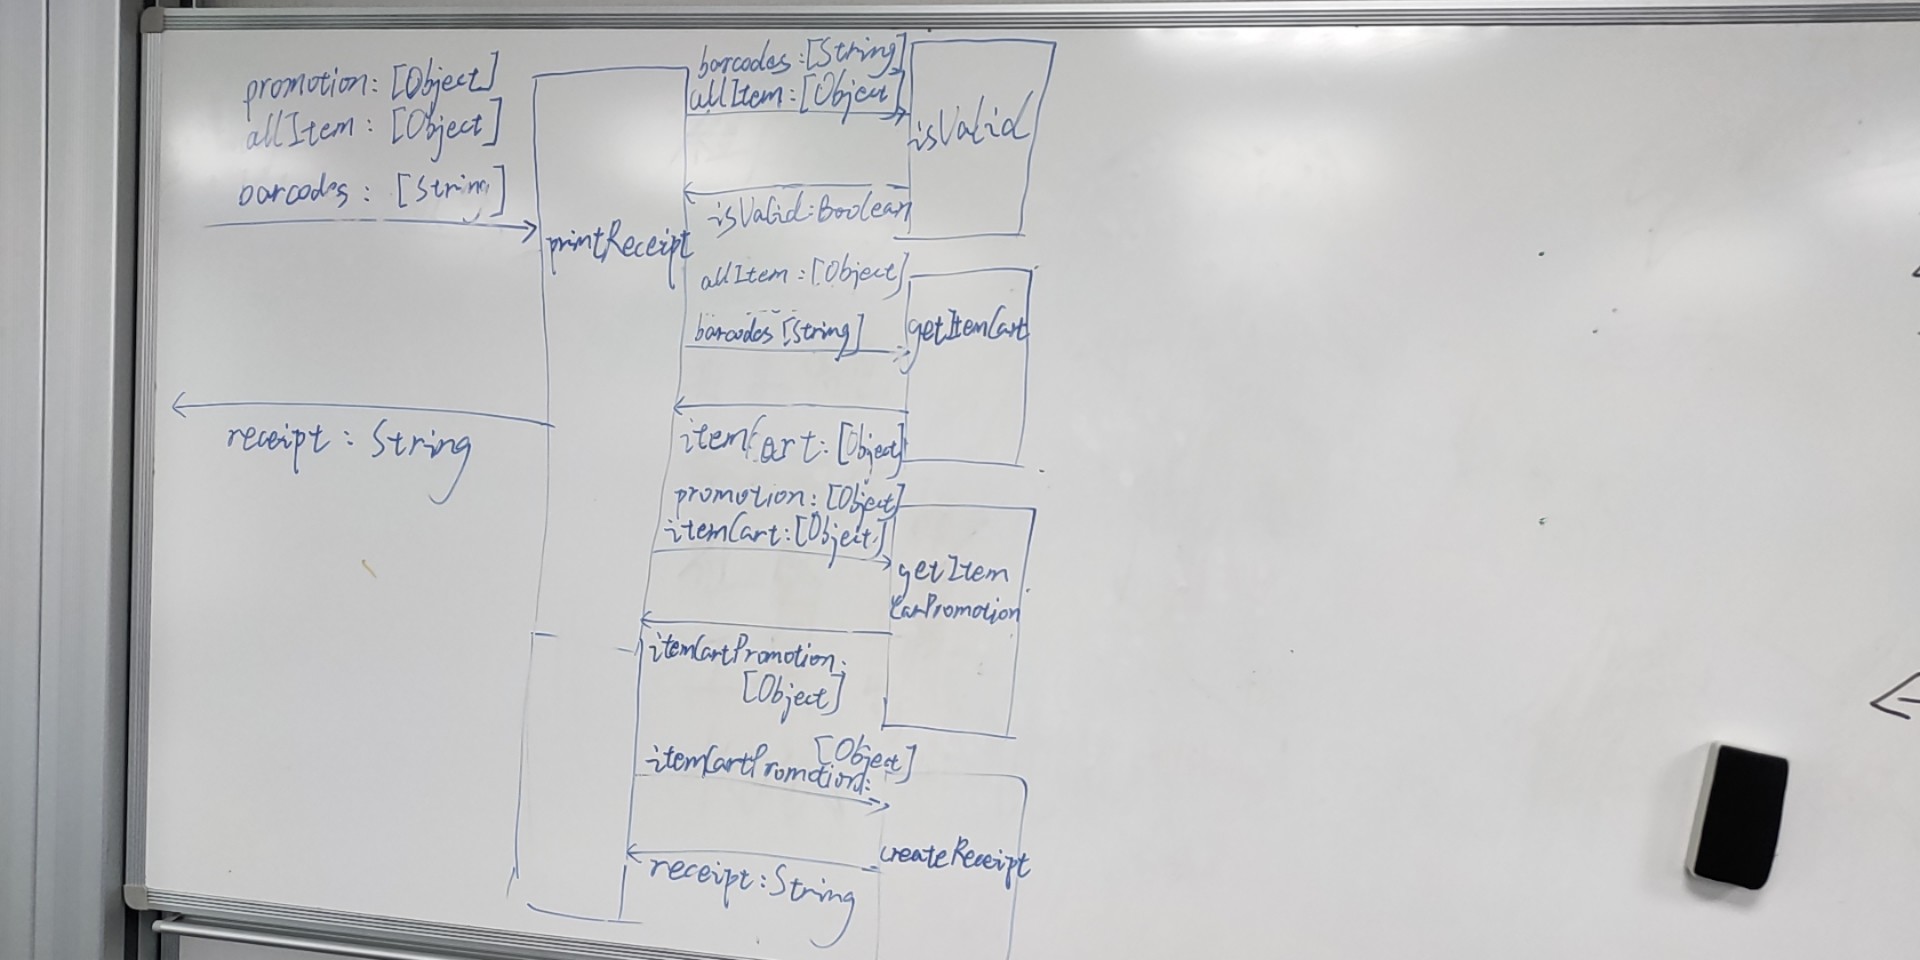 promotion: [Object]
allItem: [Object]
barcodes: [String]
printReceipt
receipt: String
barcodes: [String]
allItem: [Object]
isValid
isValid: Boolean
allItem: [Object]
barcodes [String]
getItemCart
itemCart: [Object]
promotion: [Object]
itemCart: [Object]
getItem
CartPromotion
itemCartPromotion:
[Object]
[Object]
itemCartPromotion:
createReceipt
receipt: String